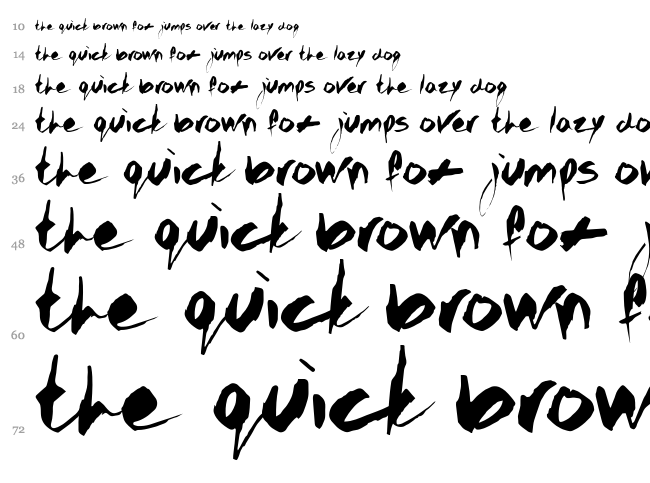 10 the quick brown fox jumps over the lazy dog
14 the quick brown fox jumps over the lazy dog
18 the quick brown fox jumps over the lazy dog
24 the quick brown fox jumps over the lazy do
36 the quick brown fox jumps ov
48 the quick brown fox j
60 the quick brown f
72 the quick brow